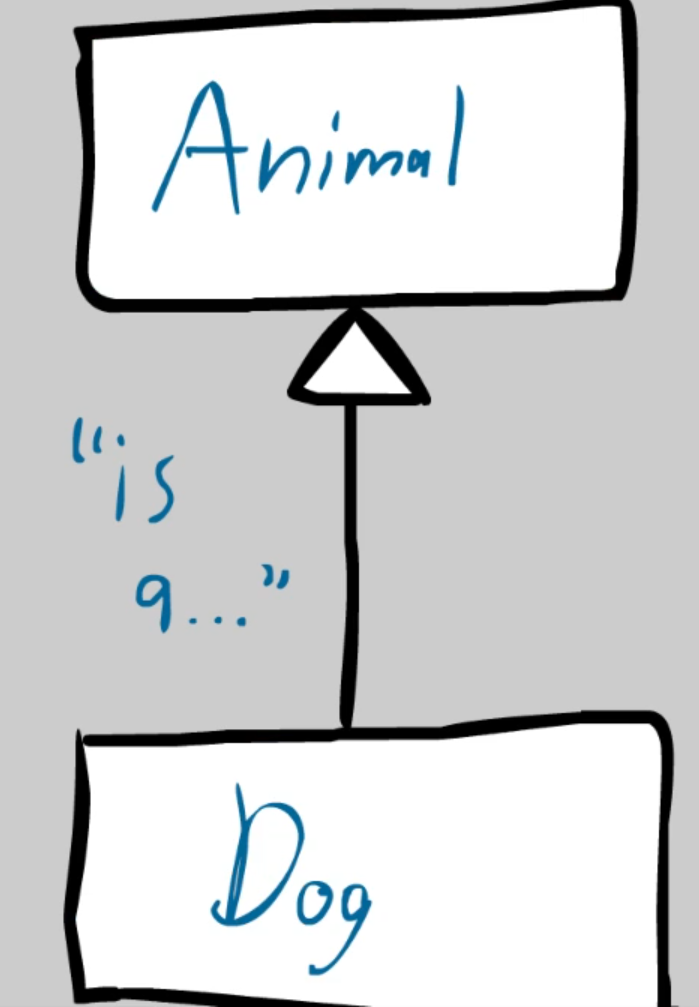 Animal
"is
a..."
Dog